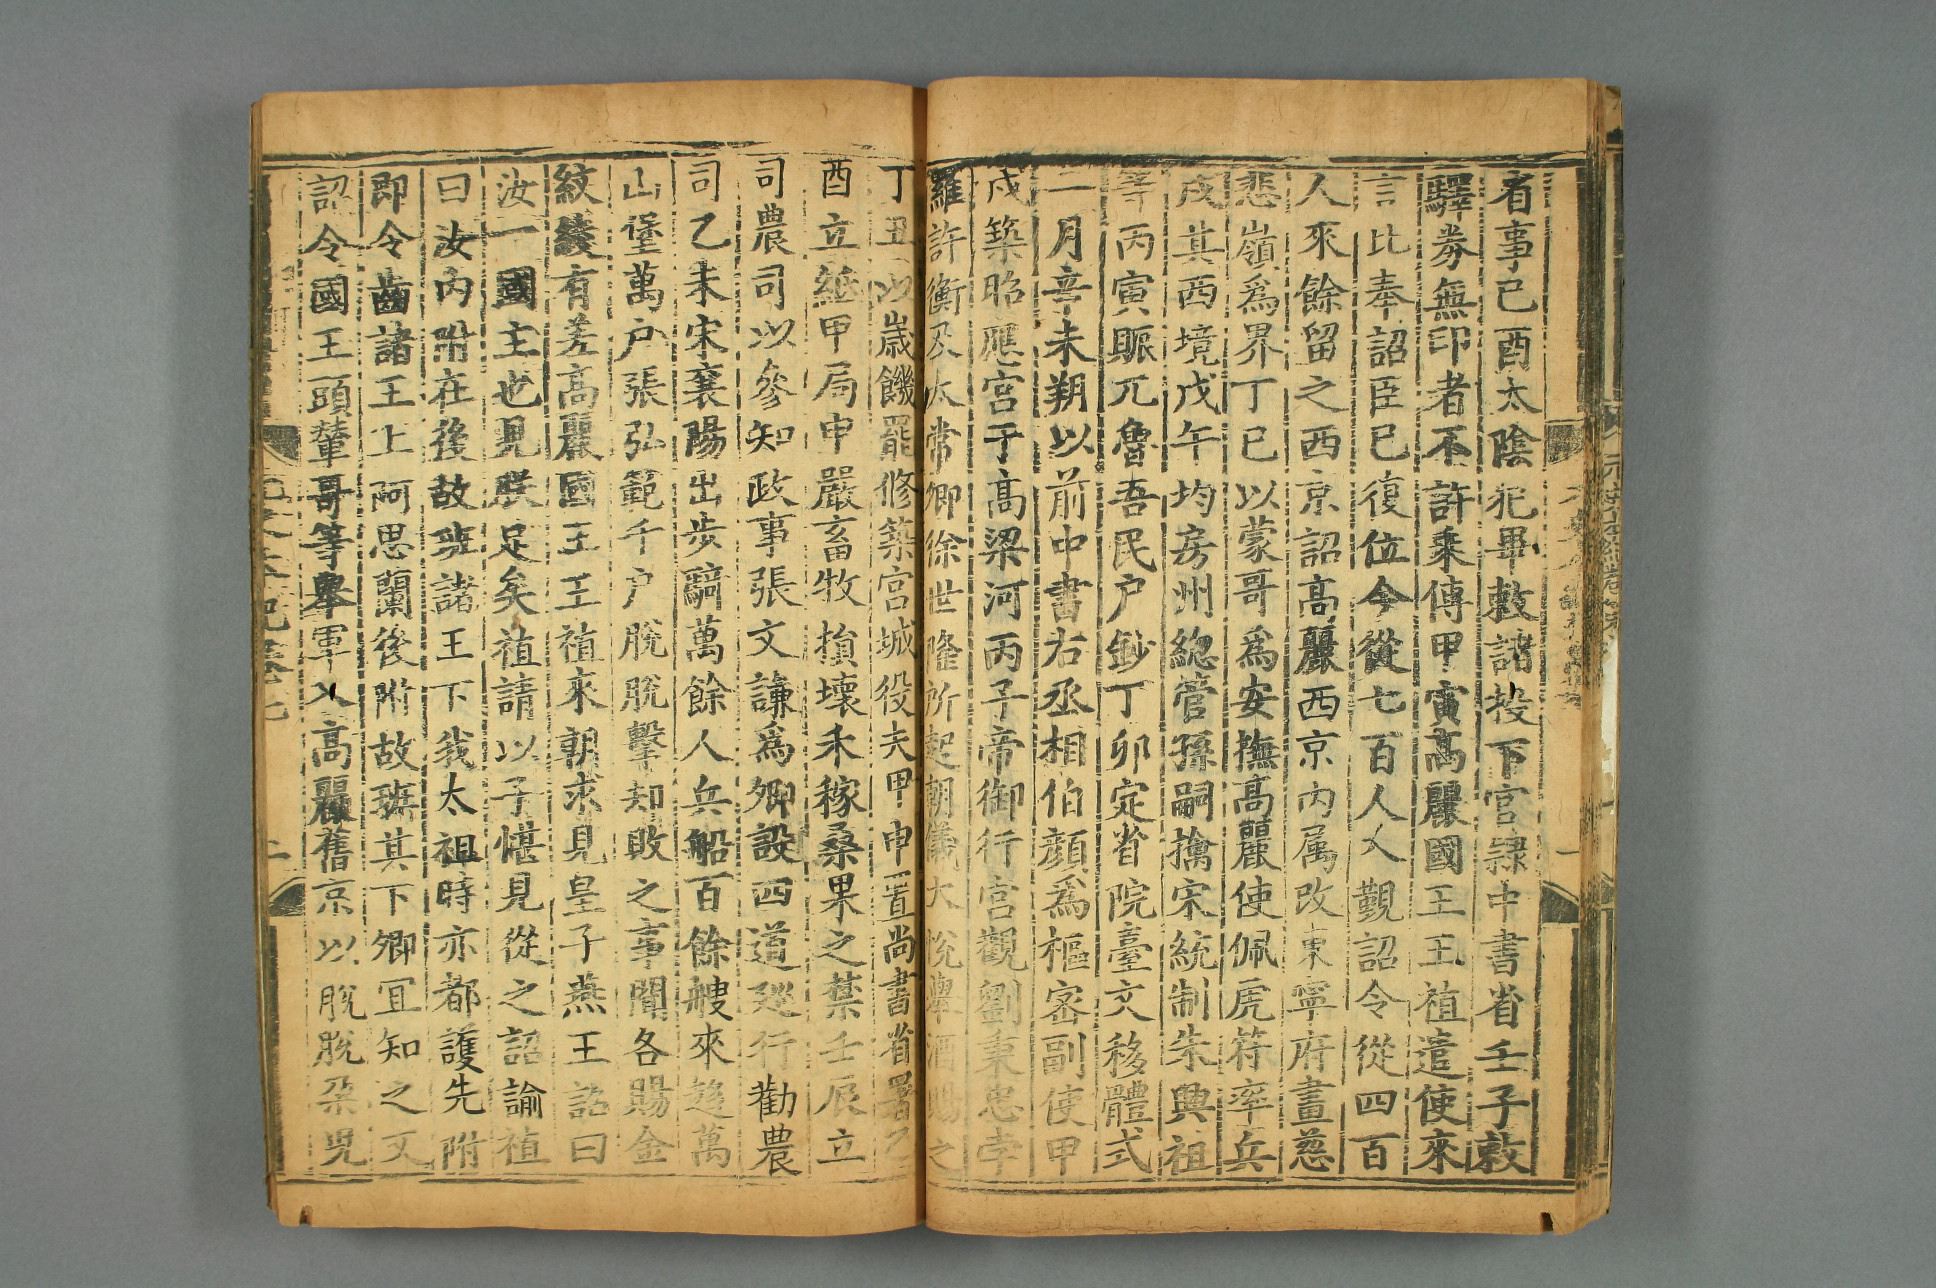 省事己酉太陰犯畢敕諸投下官隷中書省壬子敕
驛券無印者不許乗傳甲寅高麗國王王禃遣使來
言比奉詔臣已復位今從七百人入覲詔令從四百
人來餘留之西京詔高麗西京內属改東寧府畫慈
悲嶺爲界丁巳以蒙哥爲安撫高麗使佩虎符率兵
戍其西境戊午均房州緫管孫嗣擒宋統制朱興祖
等丙寅賑兀魯吾民户鈔丁卯定省院臺文移體式
二月辛未朔以前中書右丞相伯顔爲樞宻副使甲
戍築昭應宮于髙梁河丙子帝御行宮觀劉秉忠孛
羅許衡及太常卿徐世隆所起朝儀大恱舉酒賜之
丁丑以歳饑罷修築宮城役夫甲申置尚書省署乙
酉立紙甲局申嚴畜牧損壞禾稼桑果之禁壬辰立
司農司以參知政事張文謙爲卿設四道廵行勸農
司乙未宋襄陽出步騎萬餘人兵船百餘艘來趨萬
山堡萬户張弘範千户脫脫擊却敗之事聞各賜金
紋綾有差高麗國王王禃來朝求見皇子燕王詔曰
汝一國主也見朕足矣禃請以子愖見從之詔諭禃
曰汝內附在後故班諸王下我太祖時亦都護先附
即令齒諸王上阿思蘭後附故班其下卿宜知之又
詔令國王頭輦哥等舉軍入高麗舊京以脫脫朶兒
元史本紀卷七
二